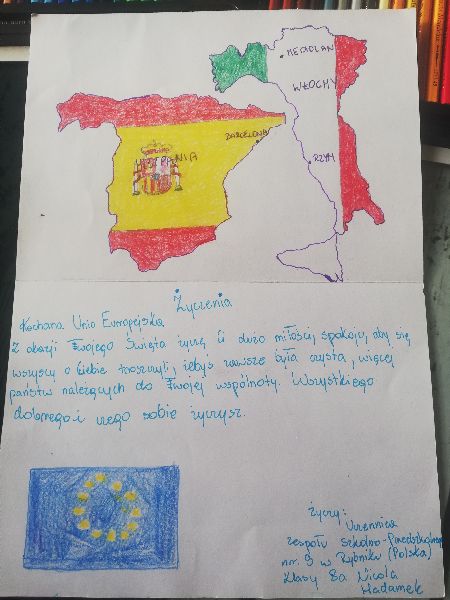 MEDIOLAN
WŁOCHY
BARCELONA
RZYM
Życzenia
Kochana Unio Europejska
Z okazji Twojego Święta życzę Ci dużo miłości, spokoju, aby się
wszyscy o Ciebie troszczyli, żebyś zawsze była czysta, więcej
państw należących do Twojej wspólnoty. Wszystkiego
dobrego i czego sobie życzysz.
Życzy:
Uczennica
zespołu Szkolno-Przedszkolnego
nr. 9 w Rybniku (Polska)
klasy 8a Nicola
Hadamek